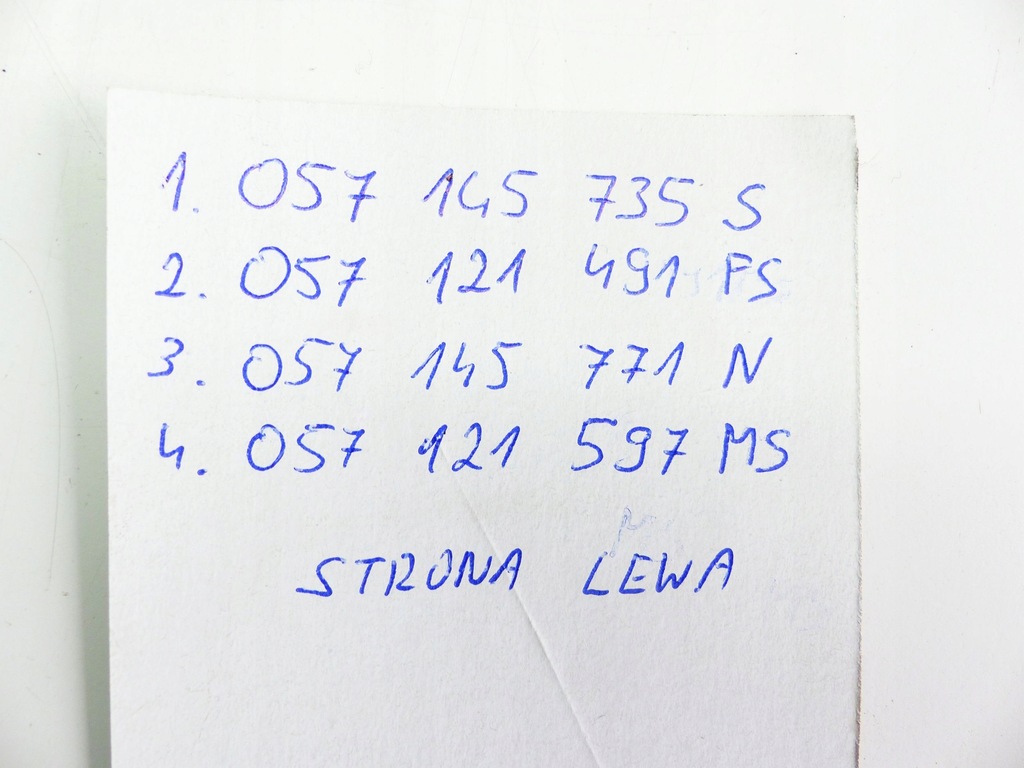 1. 057 145 735 S
2. 057 121 491 FS
3. 057 145 771 N
4. 057 121 597 MS
STRONA LEWA